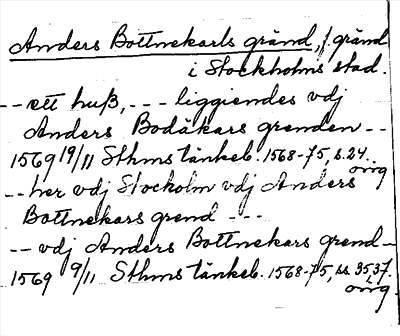 Anders Bottnekarls gränd, f. gränd
i Stockholms stad.
-- ett huß, --- liggiendes vdj
Anders Bodäkars grenden --
1569 19/11 Sthms tänkeb. 1568-75, s. 24.
orig
-- her vdj Stocholm vdj Anders
Bottnekars grend ---
-- vdj Anders Bottnekars grend --
1569 9/11 Sthms tänkeb. 1568-75, ss. 35, 37.
orig